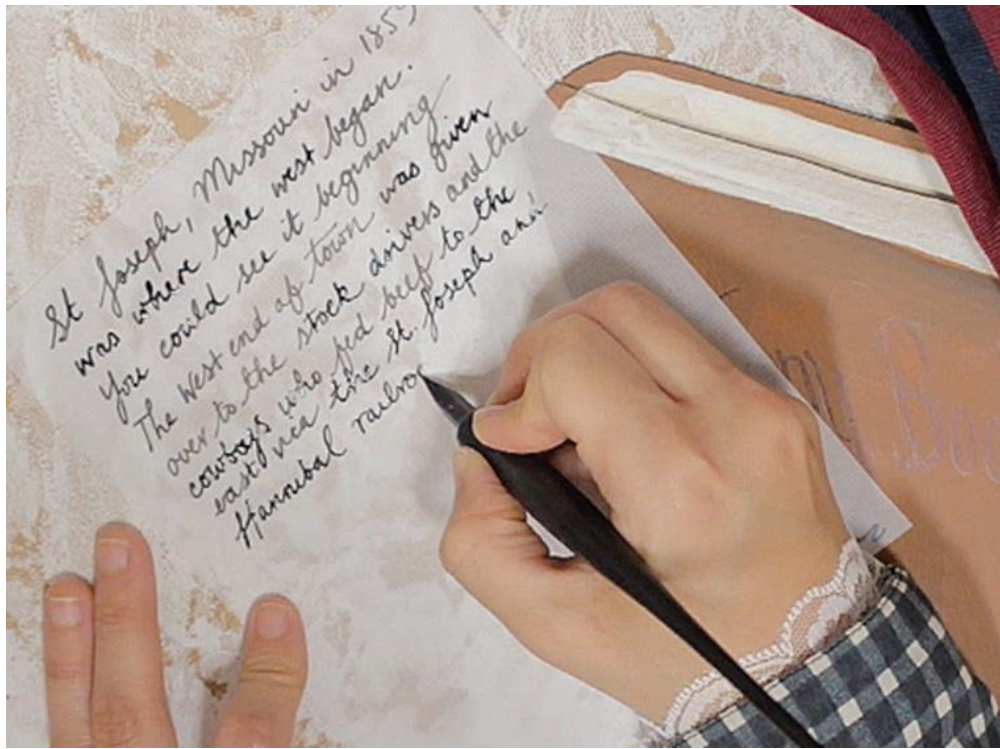 St Joseph, Missouri in 185
was where the west began.
You could see it beginning
The west end of town was given
over to the stock drivers and the
cowboys who fed beef to the
east vica the St. Joseph and
Hannibal railroa
my Boo